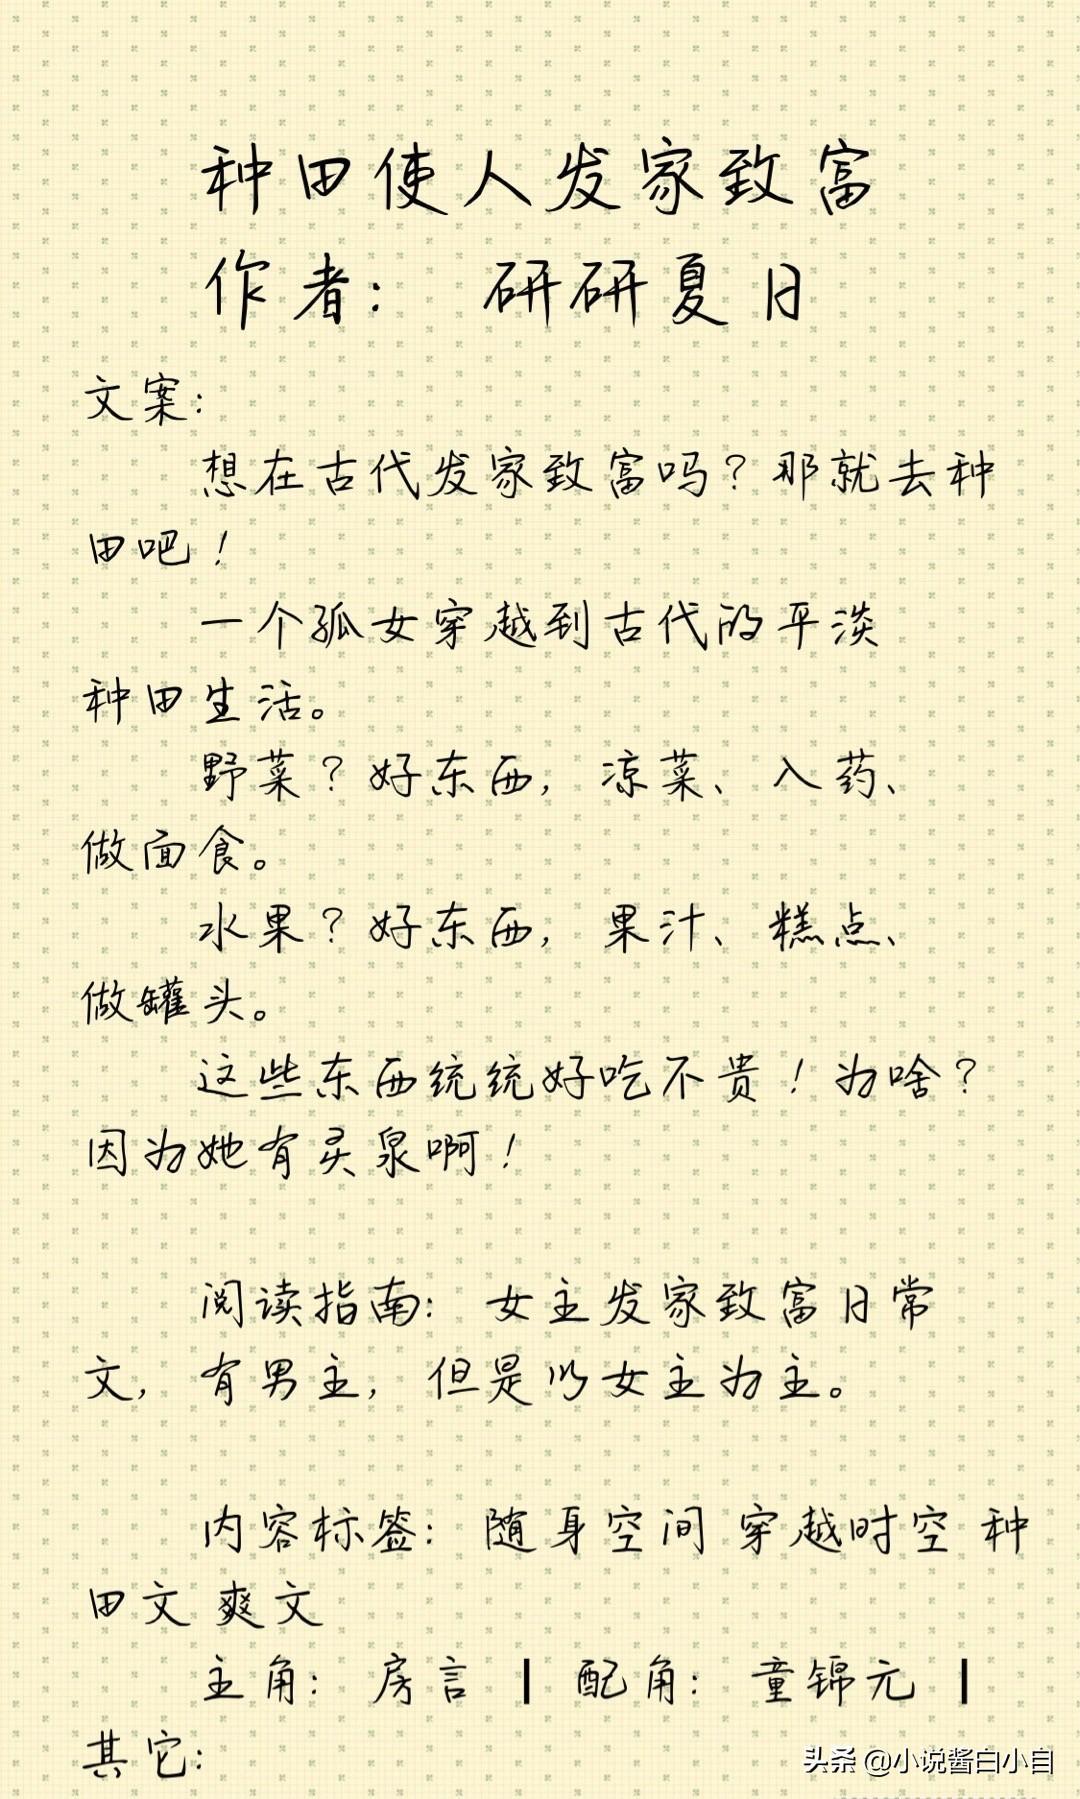 种田使人发家致富
作者： 研研夏日
文案：
想在古代发家致富吗？那就去种
田吧！
一个孤女穿越到古代的平淡
种田生活。
野菜？好东西，凉菜、入药、
做面食。
水果？好东西，果汁、糕点、
做罐头。
这些东西统统好吃不贵！为啥？
因为她有灵泉啊！
阅读指南：女主发家致富日常
文，有男主，但是以女主为主。
内容标签：随身空间 穿越时空 种
田文 爽文
主角：房言 ┃ 配角：童锦元 ┃
其它：
头条 @小说酱白小白